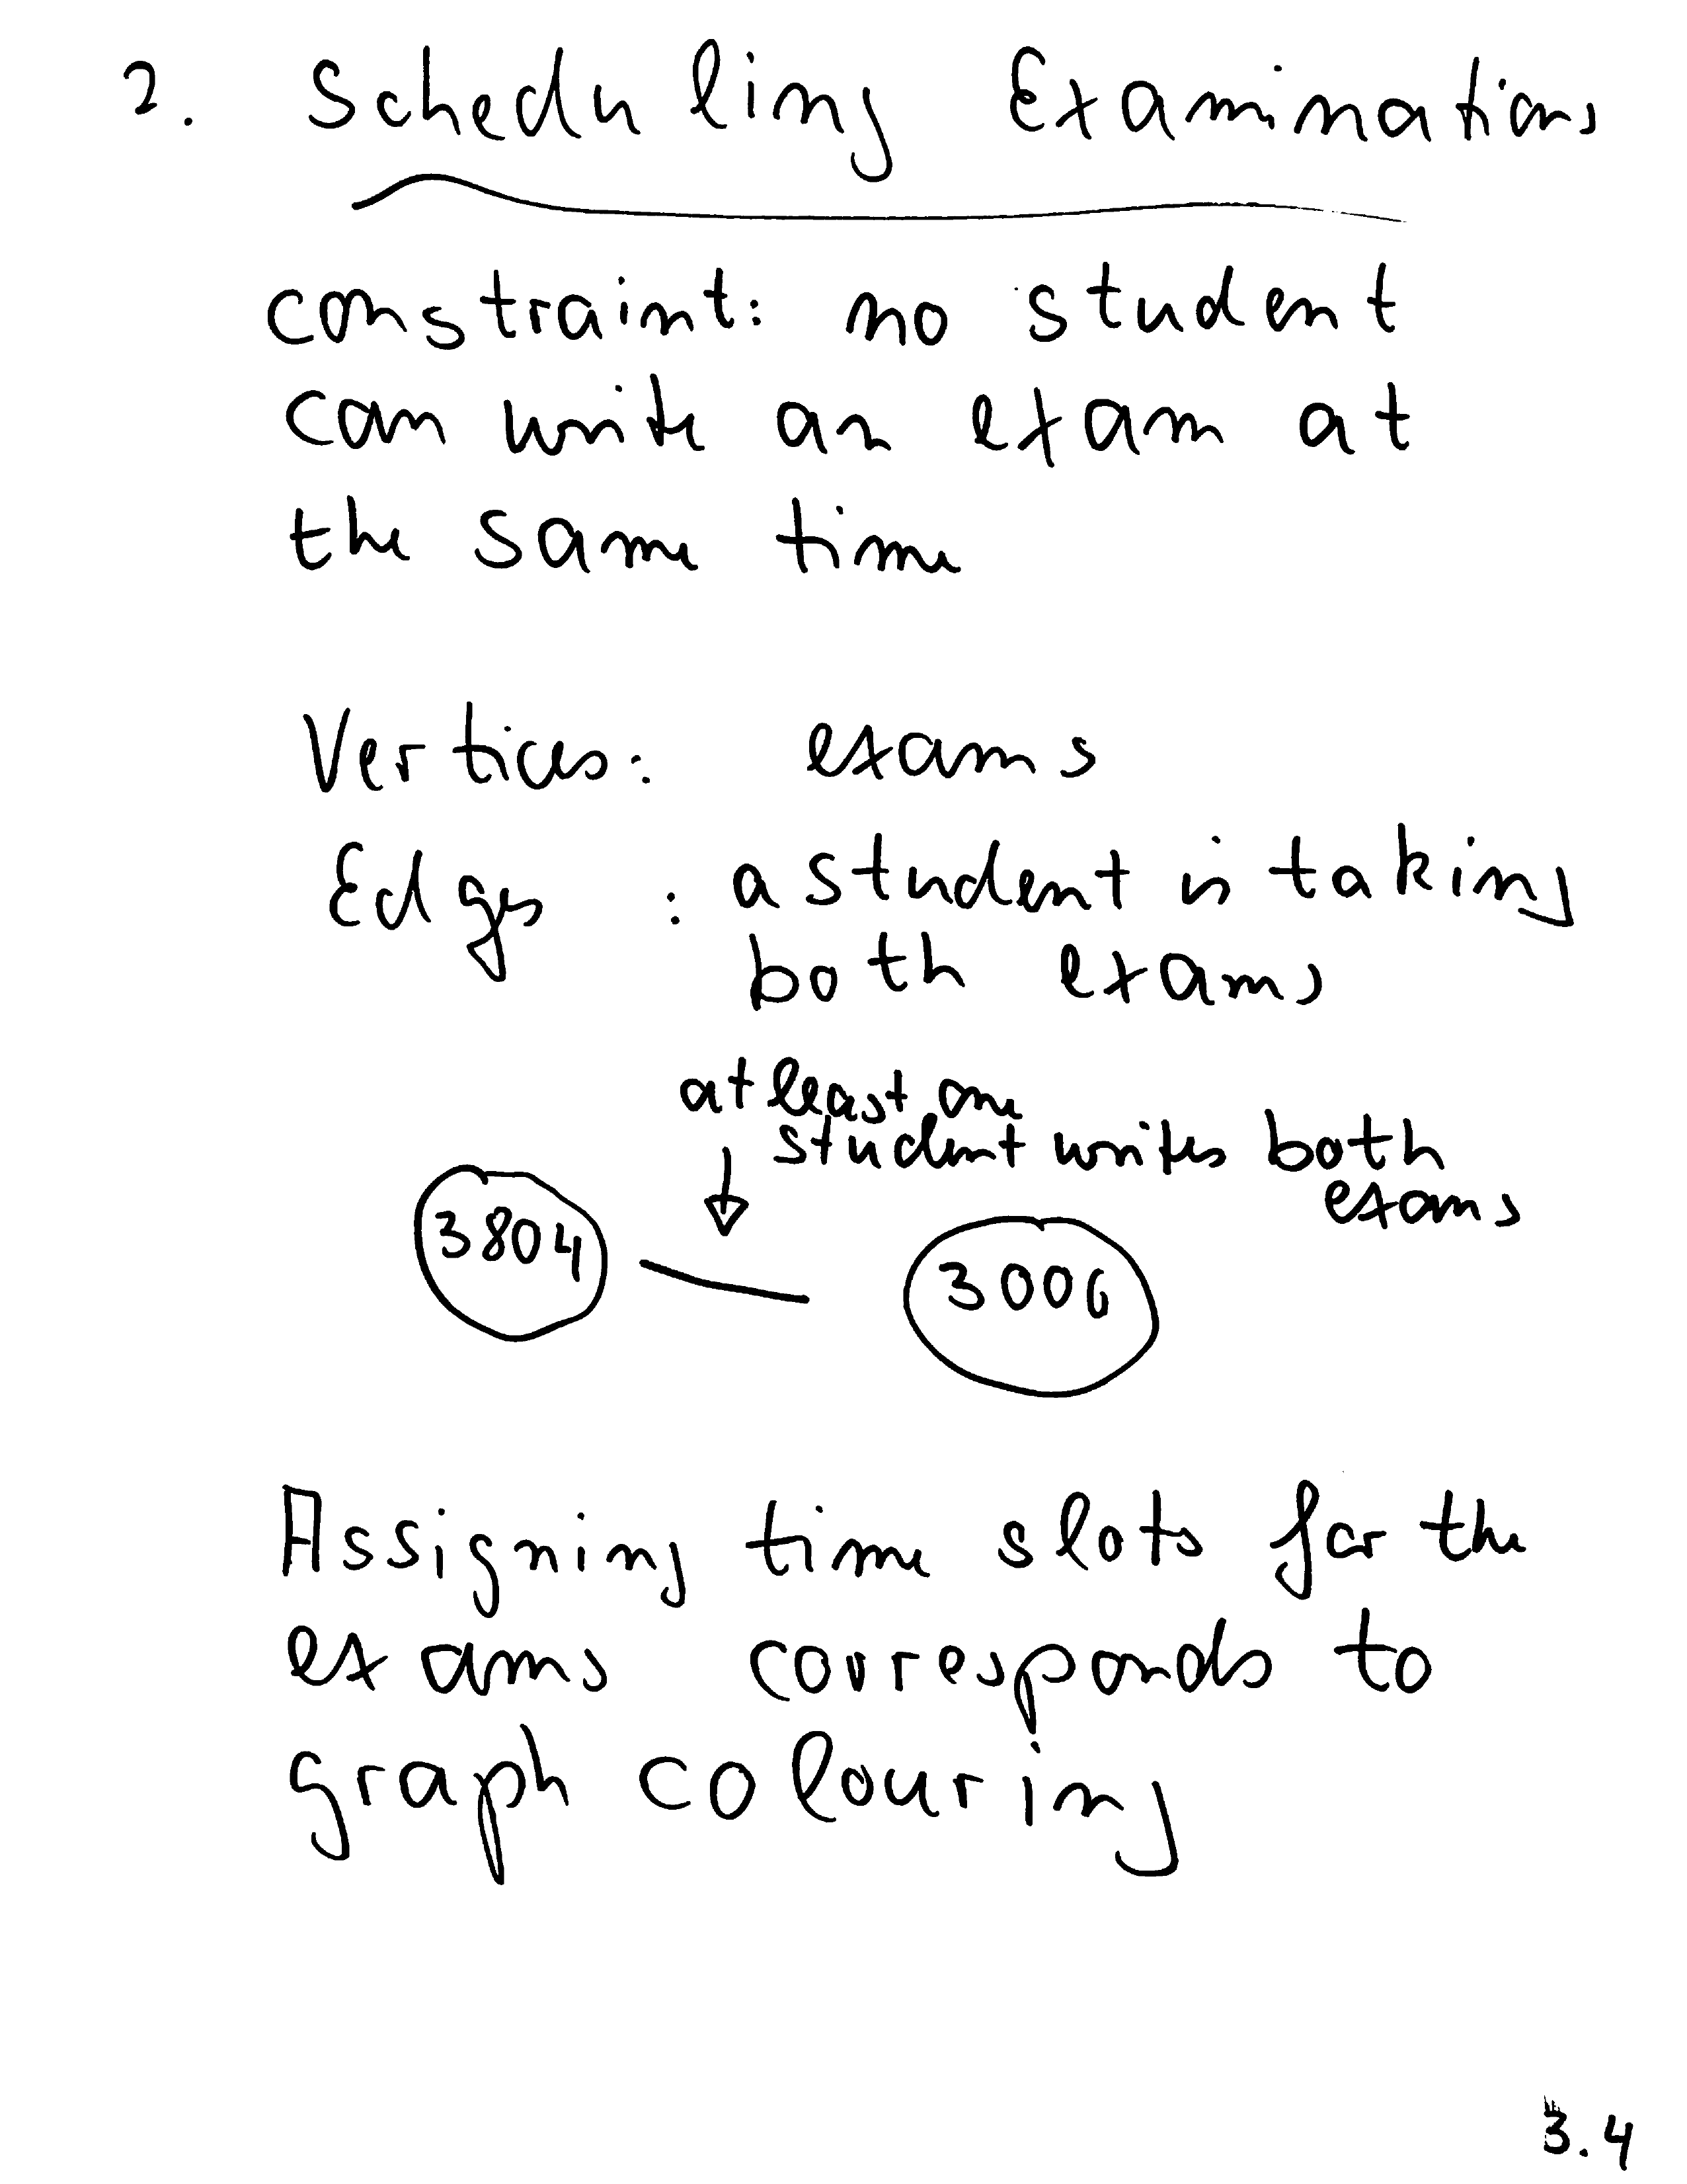 2. Scheduling Examinations
constraint: no student
can write an exam at
the same time
Vertices: exams
Edges : a student is taking
both exams
at least one
student writes both
exams
3804
3006
Assigning time slots for the
exams corresponds to
graph colouring
3.4